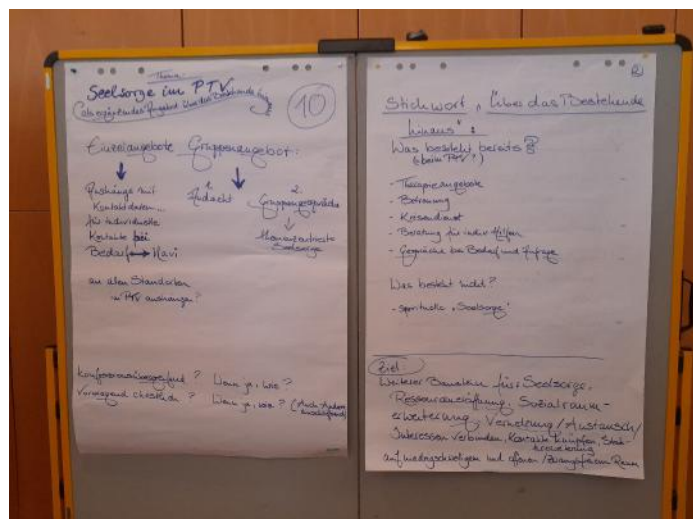 Thema:
Seelsorge im PTV
(als ergänzendes Angebot über das Bestehende hinaus)
10
Einzelangebote Gruppenangebot:
Aushänge mit
Kontaktdaten...
für individuelle
Kontakte bei
Bedarf ↔ Navi
an allen Standorten
im PTV aushängen?
1.
Andacht
2.
Gruppengespräche
themenzentrierte
Seelsorge
Konfessionsübergreifend? Wenn ja, wie?
Vorwiegend christlich? Wenn ja, wie? (Auch Andere
Stichwort „Über das Bestehende
hinaus":
Was besteht bereits?
(beim PTV?)
- Therapieangebote
- Betreuung
- Krisendienst
- Beratung für indiv. Hilfen
- Gespräche bei Bedarf und Anfrage
Was besteht nicht?
- spirituelle „Seelsorge"
Ziel
Weiterer Baustein für Seelsorge,
Ressourcenöffnung, Sozialraum-
erweiterung, Vernetzung/Austausch/
Interessen verbinden, Kontakte knüpfen,
auf niedrigschwelligem und offenen/zwangfreiem Raum